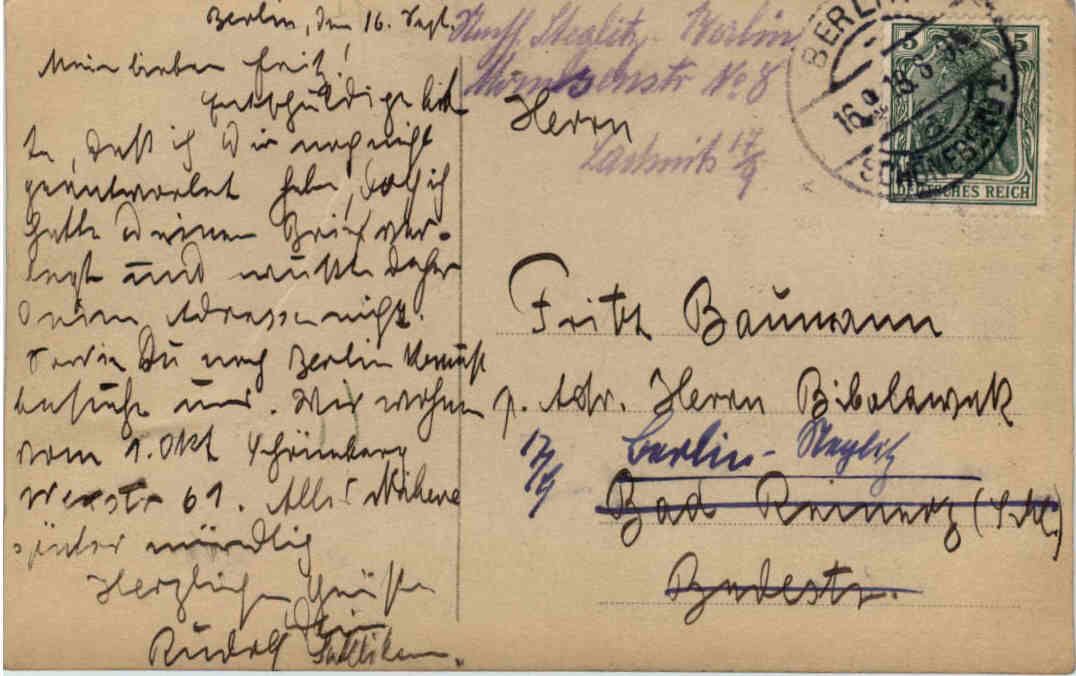 Berlin, den 16. Sept.
Mein lieber Fritz!
Entschuldige bit-
te, daß ich Dir noch nicht
geantwortet habe, doch ich
hatte Deinen Brief ver-
legt und wußte daher
Deine Adresse nicht.
Du nach Berlin kommst
besuche uns. Wir wohnen
vom 1. Okt Schöneberg
61. Alles Nähere
später mündlich
Herzlichen Grüßen
Dein
Rudolf
Steglitz - Berlin
No 8
17/9
Herrn
Fritz Baumann
p. Adr. Herrn
17/9 Berlin-Steglitz
Bad Reinerz (Schl.)
Badestr.
BERLIN
16.9.18.8-9
SCHÖNEBERG 1
5 5
DEUTSCHES REICH